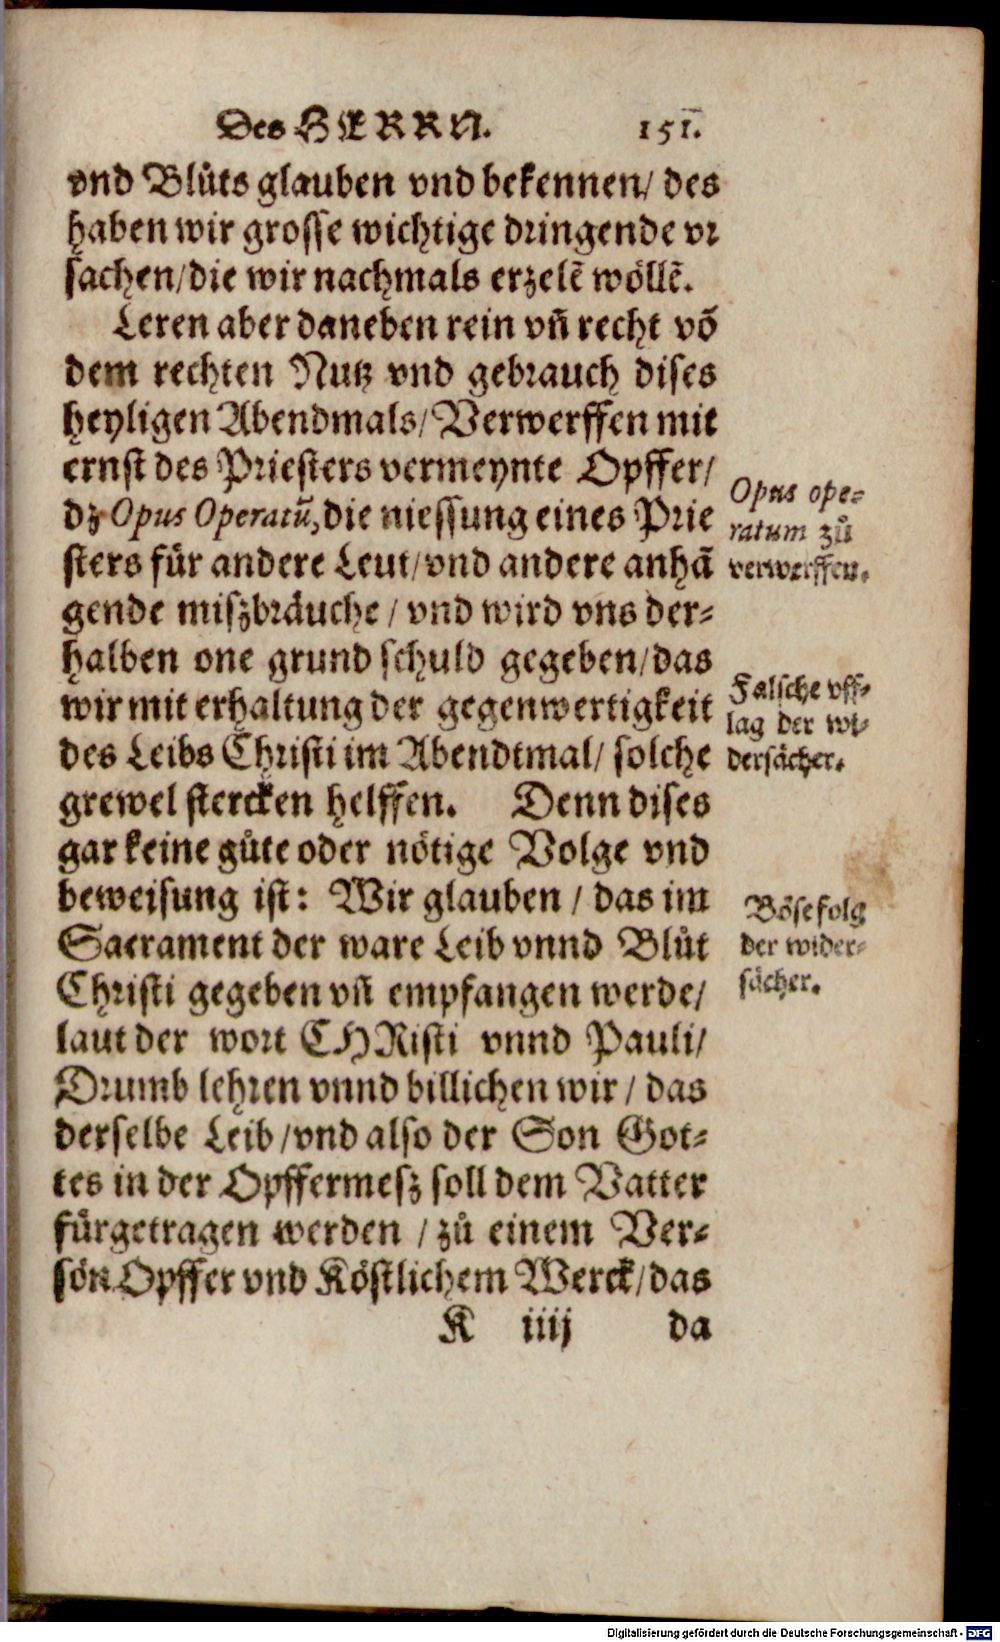 Des HERRN. 151.
vnd Blůts glauben vnd bekennen/ des
haben wir grosse wichtige dringende vr
sachen/die wir nachmals erzelē wöllē.
Leren aber daneben rein vñ recht vō
dem rechten Nutz vnd gebrauch dises
heyligen Abendmals/ Verwerffen mit
ernst des Priesters vermeynte Opffer/
dz Opus Operatū, die niessung eines Prie
sters für andere Leut/vnd andere anhā
gende miszbräuche / vnd wird vns der-
halben one grund schuld gegeben/das
wir mit erhaltung der gegenwertigkeit
des Leibs Christi im Abendtmal/ solche
grewel stercken helffen. Denn dises
gar keine gůte oder nötige Volge vnd
beweisung ist: Wir glauben / das im
Sacrament der ware Leib vnnd Blůt
Christi gegeben vñ empfangen werde/
laut der wort CHRisti vnnd Pauli/
Drumb lehren vnnd billichen wir / das
derselbe Leib /vnd also der Son Got-
tes in der Opffermesz soll dem Vatter
fürgetragen werden / zů einem Ver-
sön Opffer vnd Köstlichem Werck/das
K iiij da
Opus ope-
ratum zů
verwerffen.
Falsche vff-
lag der wi-
dersächer.
Böse folg
der wider-
sächer.
Digitalisierung gefördert durch die Deutsche Forschungsgemeinschaft - DFG